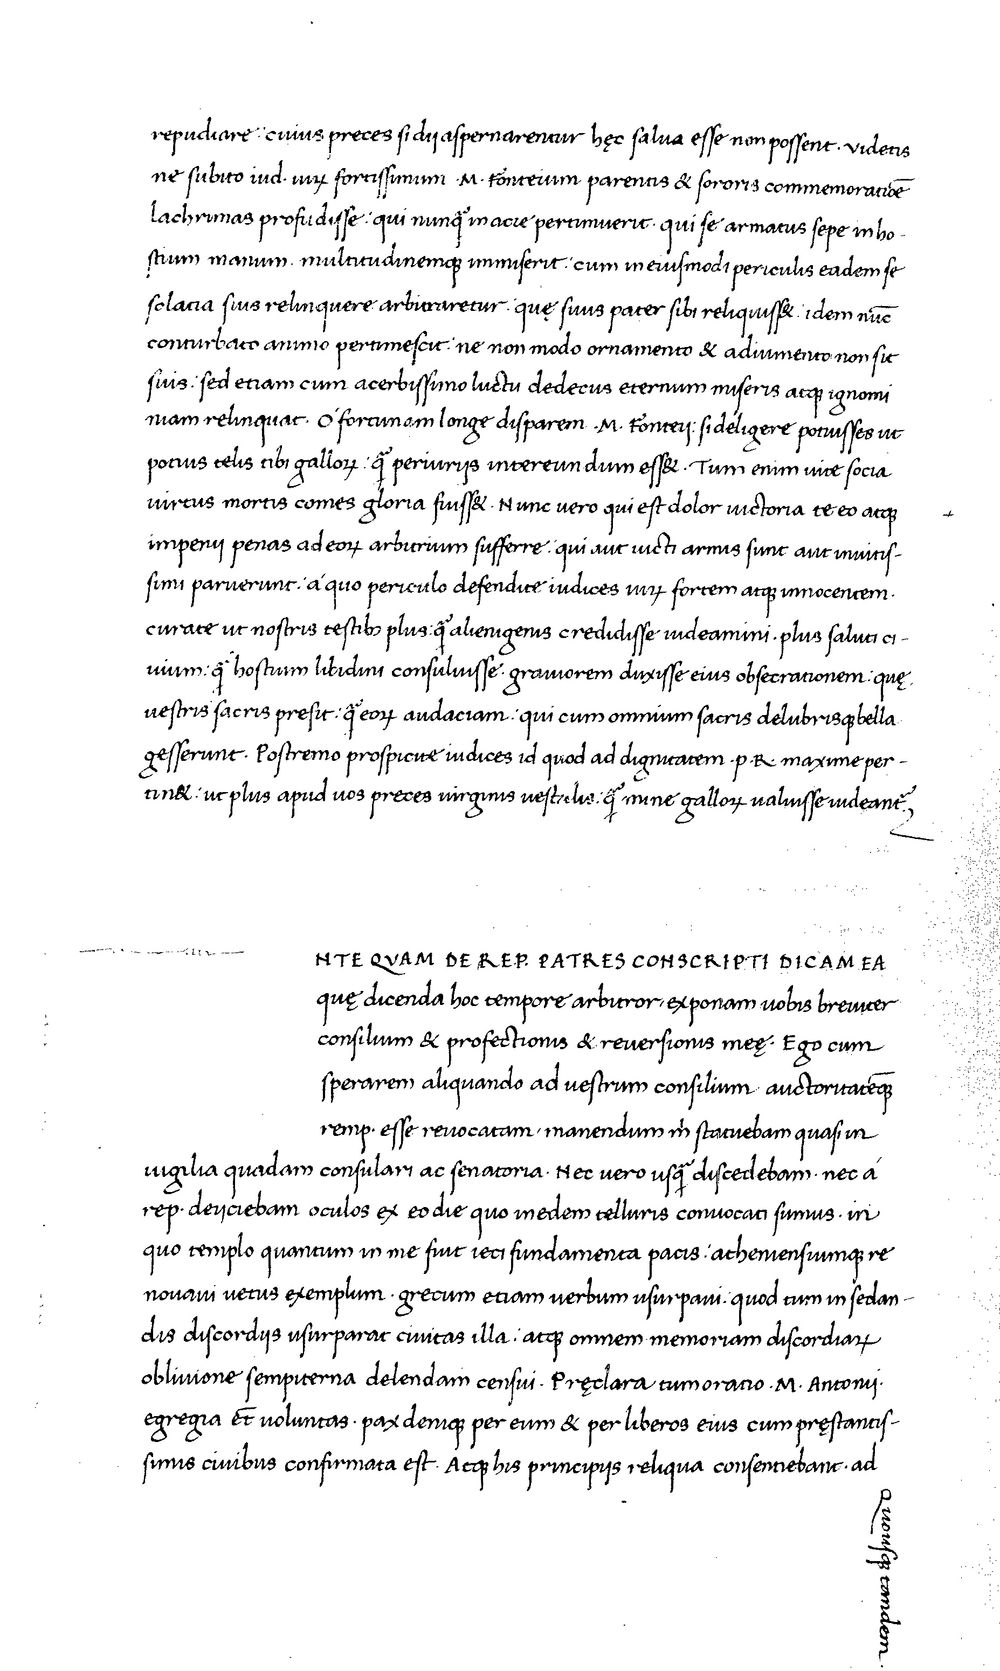 repudiare: cuius preces si dij aspernarentur hęc salua esse non possent. Videtis
ne subito iud. uiꝝ fortissimum .M. Fonteium parentis & sororis commemoratiōe
lachrimas profudisse: qui nunq̄ in acie pertimuerit. qui se armatus sepe in ho-
stium manum. multitudinemqꝫ immiserit: cum in eiusmodi periculis eadem se
solacia suis relinquere arbitraretur. quę suus pater sibi reliquiss&: idem nūc
conturbato animo pertimescit: ne non modo ornamento & adiumento non sit
suis: sed etiam cum acerbissimo luctu dedecus eternum miseris atqꝫ ignomi
niam relinquat. O fortunam longe disparem .M. Fonteij: si deligere potuisses ut
potius telis tibi galloꝝ: q̄ periurijs intereundum ess&. Tum enim uite socia
uirtus mortis comes gloria fuiss&. Nunc uero qui est dolor uictoria te eo atqꝫ
imperij penas ad eoꝝ arbitrium sufferre: qui aut uicti armis sunt aut inuitis-
simi paruerunt: á quo periculo defendite iudices uiꝝ fortem atqꝫ innocentem.
curate ut nostris testibꝫ plus: q̄ alienigenis credidisse uideamini. plus saluti ci-
uium: q̄ hostium libidini consuluisse. grauiorem duxisse eius obsecrationem: quę
uestris sacris presit: q̄ eoꝝ audaciam: qui cum omnium sacris delubrisqꝫ bella
gesserunt. Postremo prospicite iudices id quod ad dignitatem .p.R. maxime per-
tin&: ut plus apud uos preces uirginis uestalis: q̄ mine galloꝝ ualuisse uideant᷑
NTE QVAM DE REP. PATRES CONSCRIPTI DICAM EA
quę dicenda hoc tempore arbitror, exponam uobis breuiter
consilium & profectionis & reuersionis meę. Ego cum
sperarem aliquando ad uestrum consilium auctoritatēqꝫ
remp. esse reuocatam, manendum m̄ statuebam quasi in
uigilia quadam consulari ac senatoria. Nec uero usq̄ discedebam. nec á
rep. deijciebam oculos ex eo die quo in edem telluris conuocati sumus. in
quo templo quantum in me fuit ieci fundamenta pacis: atheniensiumqꝫ re
nouaui uetus exemplum. grecum etiam uerbum usurpaui: quod tum in sedan-
dis discordijs usurparat ciuitas illa: atqꝫ omnem memoriam discordiaꝝ
obliuione sempiterna delendam censui. Pręclara tum oratio .M. Antonij.
egregia ēt uoluntas. pax deniqꝫ per eum & per liberos eius cum pręstantis-
simis ciuibus confirmata est. Atqꝫ his principijs reliqua consentiebant. ad
Quousqꝫ tandem